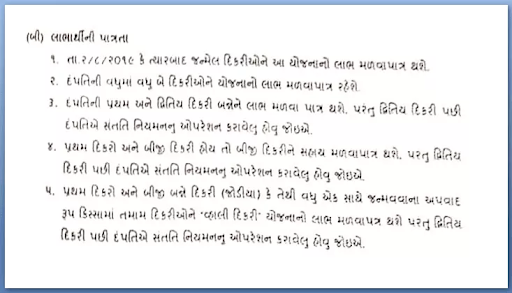 (બી) લાભાર્થીની પાત્રતા
૧. તા.૨/૮/૨૦૧૯ કે ત્યારબાદ જન્મેલ દિકરીઓને આ યોજનાનો લાભ મળવાપાત્ર થશે.
૨. દંપતિની વધુમાં વધુ બે દિકરીઓને યોજનાનો લાભ મળવાપાત્ર રહેશે.
૩. દંપતિની પ્રથમ અને દ્રિતિય દિકરી બન્નેને લાભ મળવા પાત્ર થશે. પરતુ દ્રિતિય દિકરી પછી
દંપતિએ સંતતિ નિયમનનુ ઓપરેશન કરાવેલુ હોવુ જોઇએ.
૪. પ્રથમ દિકરો અને બીજી દિકરી હોય તો બીજી દિકરીને સહાય મળવાપાત્ર થશે. પરતુ દ્રિતિય
દિકરી પછી દંપતિએ સંતતિ નિયમનનુ ઓપરેશન કરાવેલુ હોવુ જોઇએ.
૫. પ્રથમ દિકરો અને બીજી બન્ને દિકરી (જોડીયા) કે તેથી વધુ એક સાથે જન્મવવાના અપવાદ
રૂપ કિસ્સામાં તમામ દિકરીઓને 'વ્હાલી દિકરી' યોજનાનો લાભ મળવાપત્ર થશે પરતુ દ્રિતિય
દિકરી પછી દંપતિએ સંતતિ નિયમનનુ ઓપરેશન કરાવેલુ હોવુ જોઇએ.